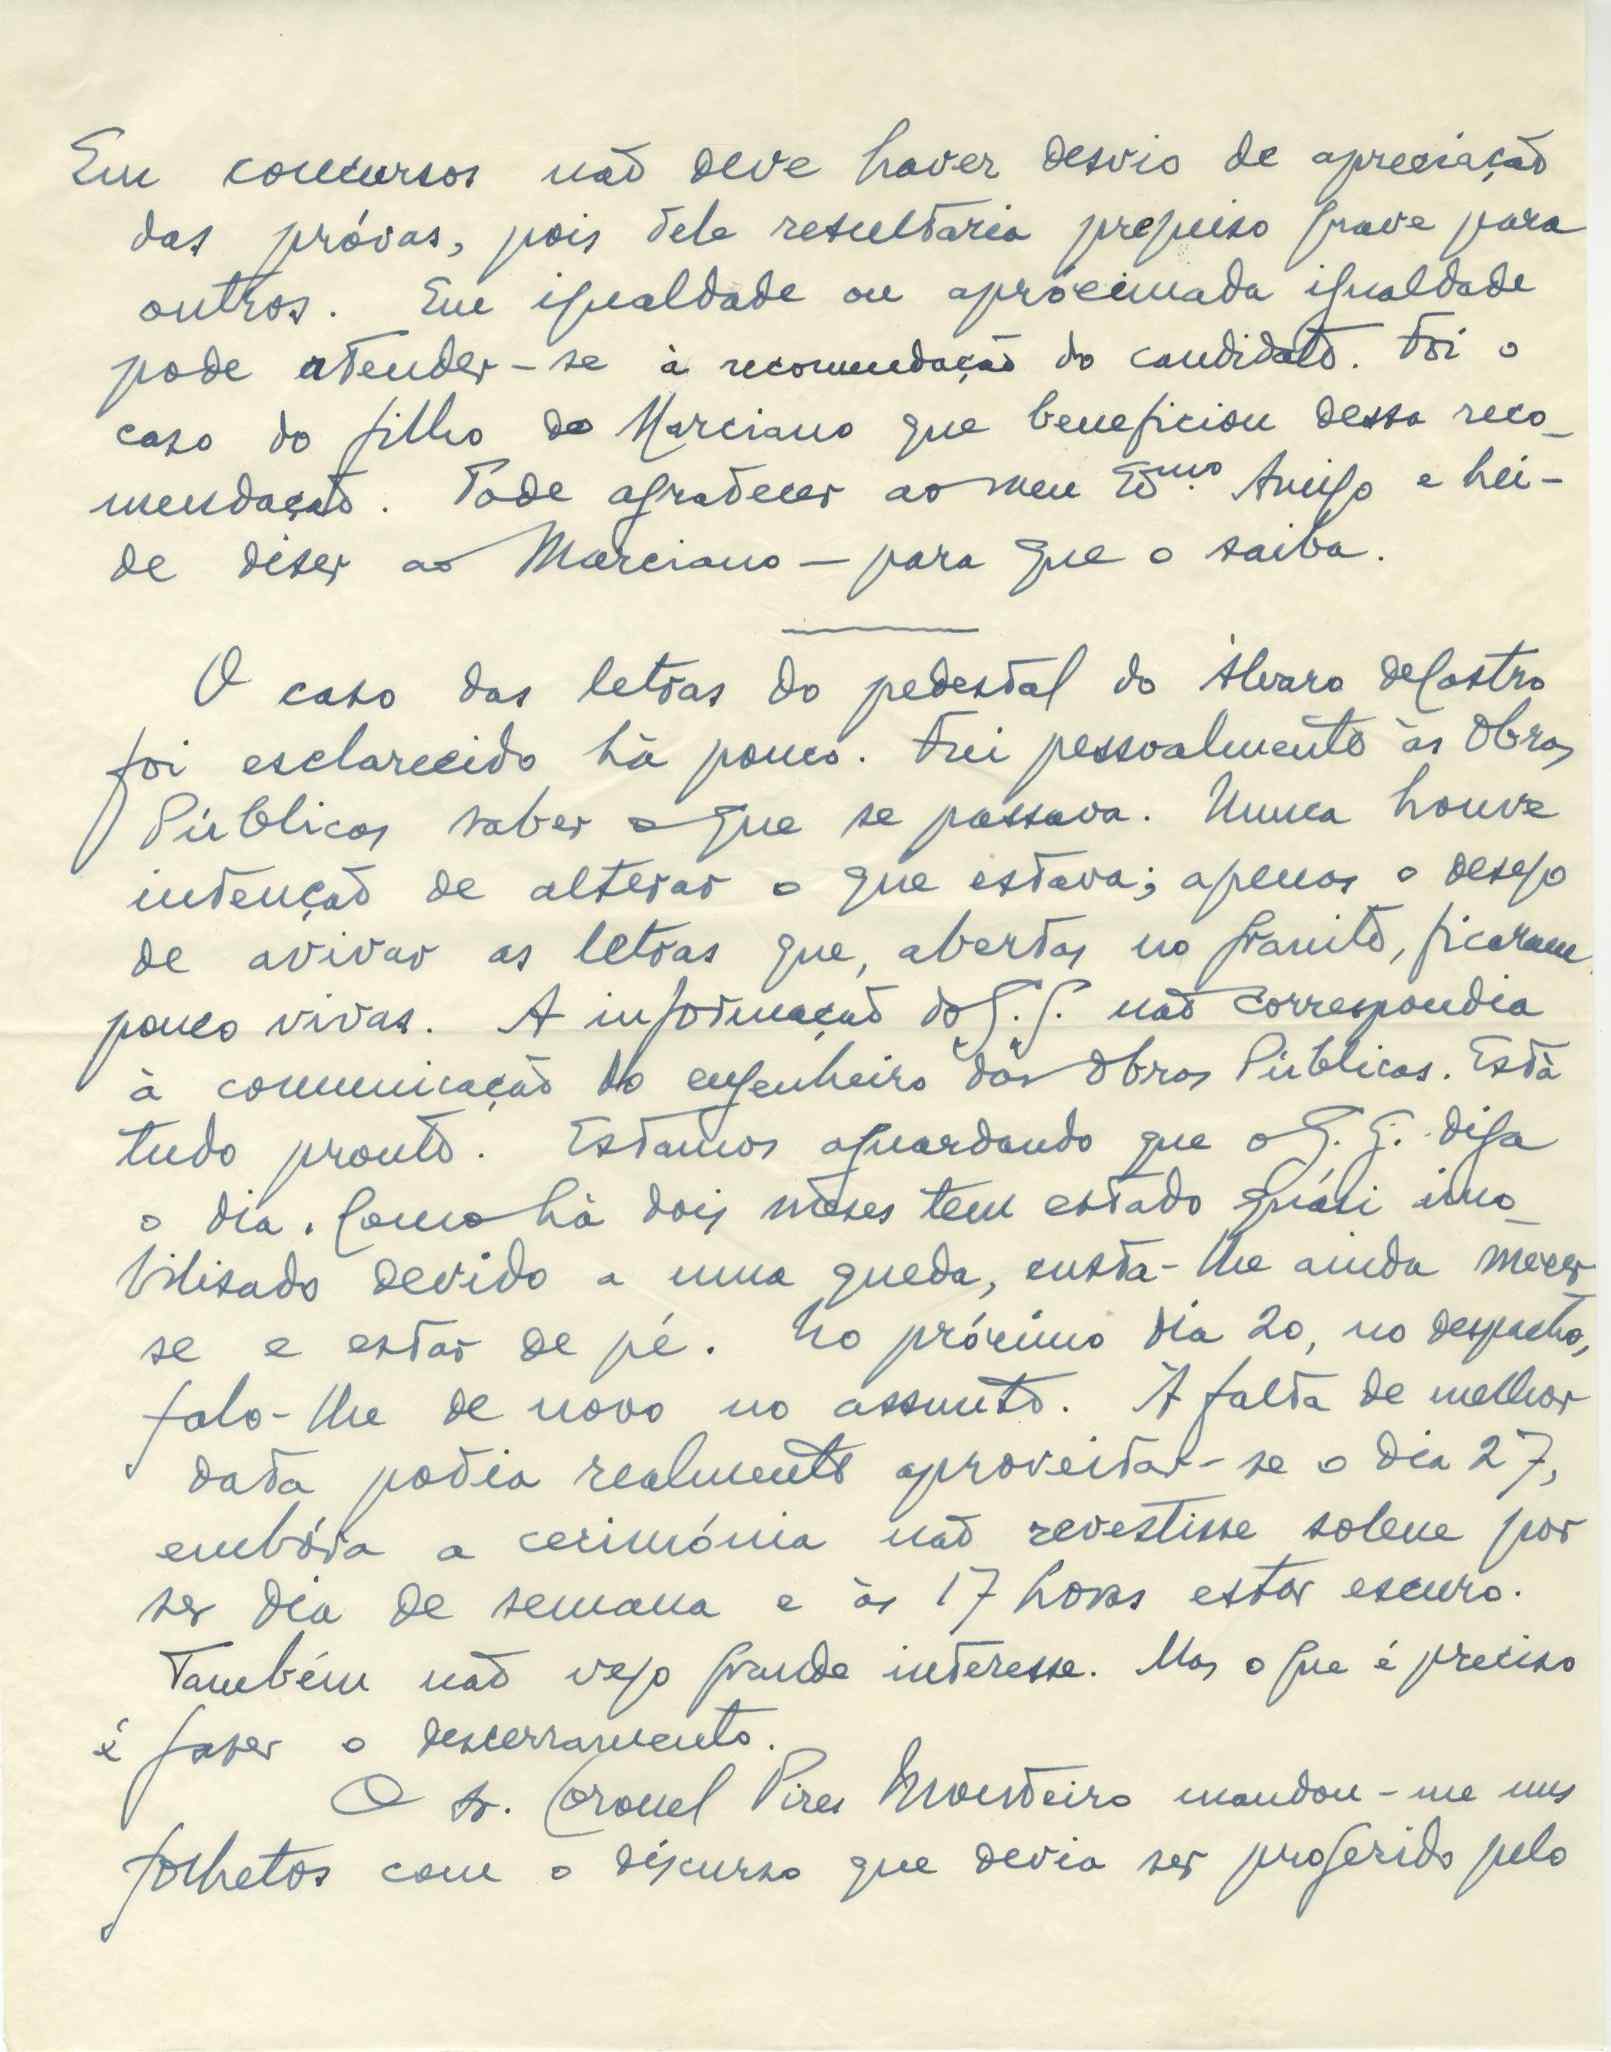 Em concursos não deve haver desvio de apreciação
das próvas, pois dele resultaria prejuiso grave para
outros. Em igualdade ou aprócimada igualdade
pode atender-se à recomendação do candidato. Foi o
caso do filho do Marciano que beneficiou dessa reco-
mendação. Pode agradecer ao meu Exmo. Amigo e hei-
de diser ao Marciano – para que o saiba.
O caso das letras do pedestal do Álvaro de Castro
foi esclarecido há pouco. Fui pessoalmente às Obras
Públicas saber o que se passava. Nunca houve
intenção de alterar o que estava; apenas o desejo
de avivar as letras que, abertas no granito, ficaram
pouco vivas. A informação do G. G. não correspondia
à comunicação do engenheiro das Obras Públicas. Está
tudo pronto. Estamos aguardando que o G. G. diga
o dia. Como há dois meses tem estado quási imo-
bilisado devido a uma queda, custa-lhe ainda mecer
se e estar de pé. No prócimo dia 20, no despacho,
falo-lhe de novo no assunto. Á falta de melhor
data podia realmente aproveitar-se o dia 27,
embóra a cerimónia não revestisse solene por
ser dia de semana e às 17 horas estar escuro.
Também não vejo grande interesse. Mas o que é preciso
é faser o descerramento.
O Sr. Coronel Pires Monteiro mandou-me uns
folhetos com o discurso que devia ser proferido pelo